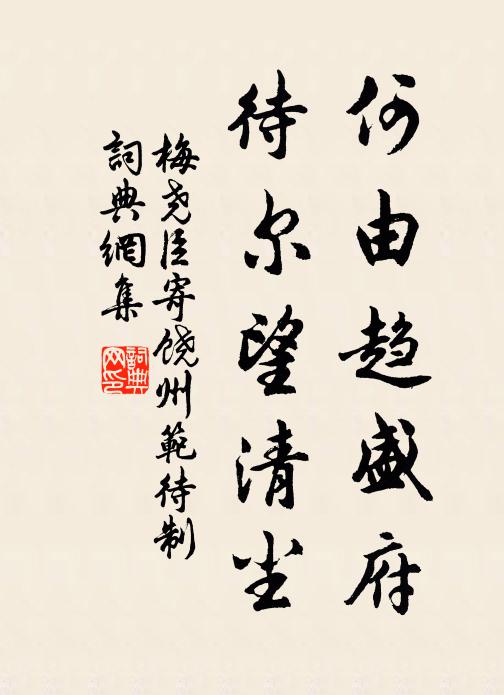 何由趋盛府
待尔望清尘
梅尧臣寄饶州範待制
詞典網集
詞典网印